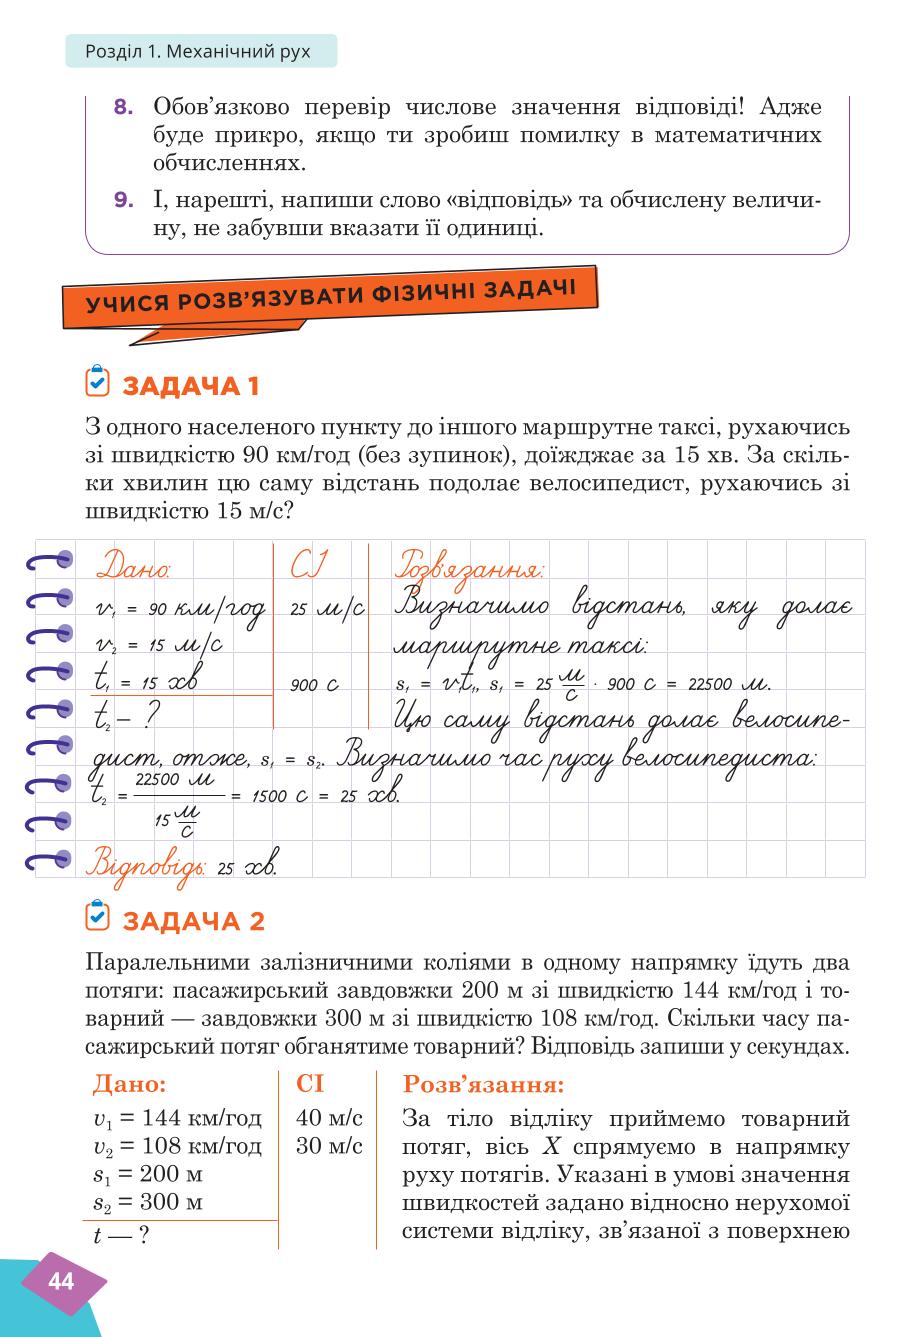 Розділ 1. Механічний рух
8. Обов’язково перевір числове значення відповіді! Адже
буде прикро, якщо ти зробиш помилку в математичних
обчисленнях.
9. І, нарешті, напиши слово «відповідь» та обчислену величи-
ну, не забувши вказати її одиниці.
УЧИСЯ РОЗВ’ЯЗУВАТИ ФІЗИЧНІ ЗАДАЧІ
ЗАДАЧА 1
З одного населеного пункту до іншого маршрутне таксі, рухаючись
зі швидкістю 90 км/год (без зупинок), доїжджає за 15 хв. За скіль-
ки хвилин цю саму відстань подолає велосипедист, рухаючись зі
швидкістю 15 м/с?
Дано: СІ Розв'язання:
v₁ = 90 км/год 25 м/с Визначимо відстань, яку долає
v₂ = 15 м/с маршрутне таксі:
t₁ = 15 хв 900 с s₁ = v₁t₁, s₁ = 25 м/с · 900 с = 22500 м.
t₂ – ? Цю саму відстань долає велосипе-
дист, отже, s₁ = s₂. Визначимо час руху велосипедиста:
t₂ = 22500 м / 15 м/с = 1500 с = 25 хв.
Відповідь: 25 хв.
ЗАДАЧА 2
Паралельними залізничними коліями в одному напрямку їдуть два
потяги: пасажирський завдовжки 200 м зі швидкістю 144 км/год і то-
варний — завдовжки 300 м зі швидкістю 108 км/год. Скільки часу па-
сажирський потяг обганятиме товарний? Відповідь запиши у секундах.
Дано: СІ Розв’язання:
v₁ = 144 км/год 40 м/с За тіло відліку приймемо товарний
v₂ = 108 км/год 30 м/с потяг, вісь X спрямуємо в напрямку
s₁ = 200 м руху потягів. Указані в умові значення
s₂ = 300 м швидкостей задано відносно нерухомої
t — ? системи відліку, зв’язаної з поверхнею
44